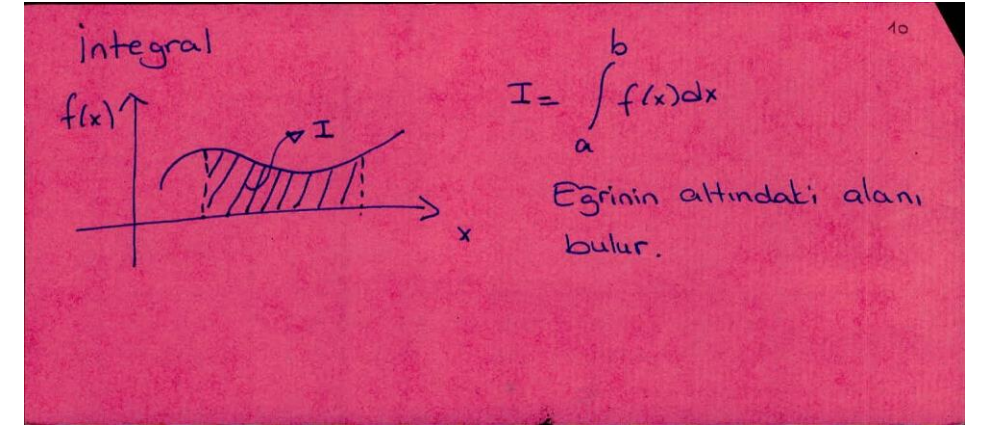 10
integral
f(x)
I
x
b
I= ∫ f(x)dx
a
Eğrinin altındaki alanı
bulur.